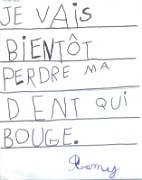 JE VAIS
BIENTÔT
PERDRE MA
DENT QUI
BOUGE.
Remy